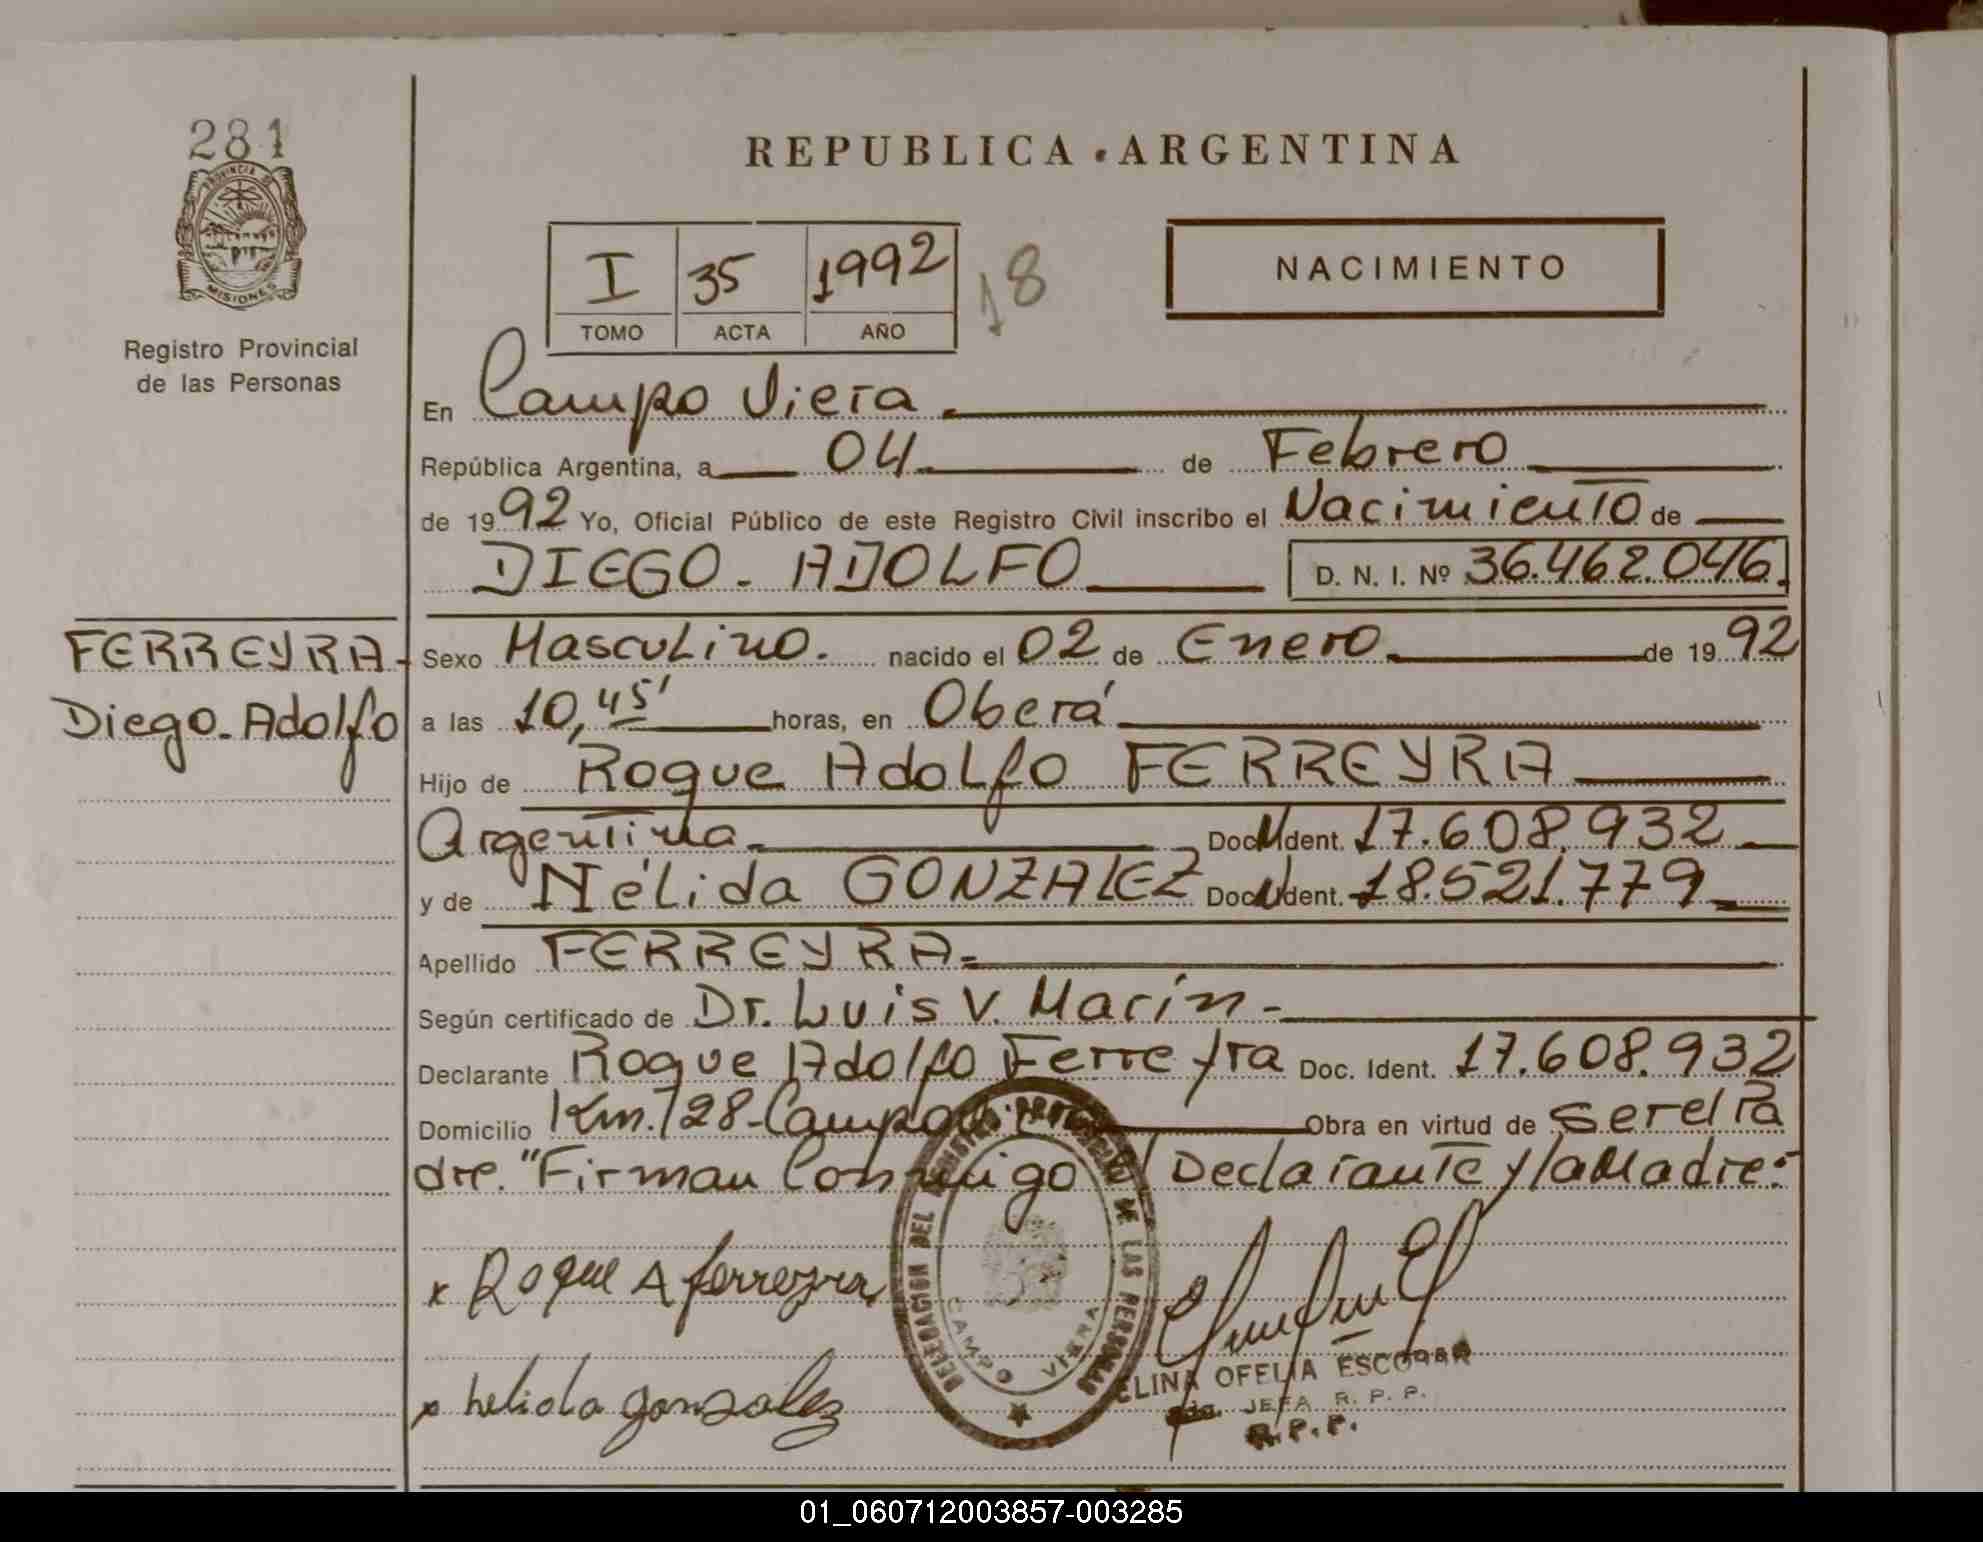 281
PROVINCIA DE
MISIONES
Registro Provincial
de las Personas
REPUBLICA ARGENTINA
I 35 1992 18
TOMO ACTA AÑO
NACIMIENTO
En Campo Viera
República Argentina, a 04 de Febrero
de 1992 Yo, Oficial Público de este Registro Civil inscribo el Nacimiento de
DIEGO - ADOLFO D. N. I. Nº 36.462.046.
FERREYRA -
Diego - Adolfo
Sexo Masculino. nacido el 02 de Enero de 1992
a las 10,45' horas, en Oberá
Hijo de Roque Adolfo FERREYRA
Argentina Doc. Ident. 17.608.932
y de Nélida GONZALEZ Doc. Ident. 18.521.779
Apellido FERREYRA
Según certificado de Dr. Luis V. Marín -
Declarante Roque Adolfo Ferreyra Doc. Ident. 17.608.932
Domicilio Km. 128 - Campo Obra en virtud de ser el Pa
dre. "Firman Conmigo el Declarante y la Madre:
x Roque A ferreyra
x nelida gonzalez
DELEGACION DEL REGISTRO PROVINCIAL DE LAS PERSONAS
CAMPO VIERA
ELINA OFELIA ESCOBAR
JEFA R. P. P.
R. P. P.
01_060712003857-003285